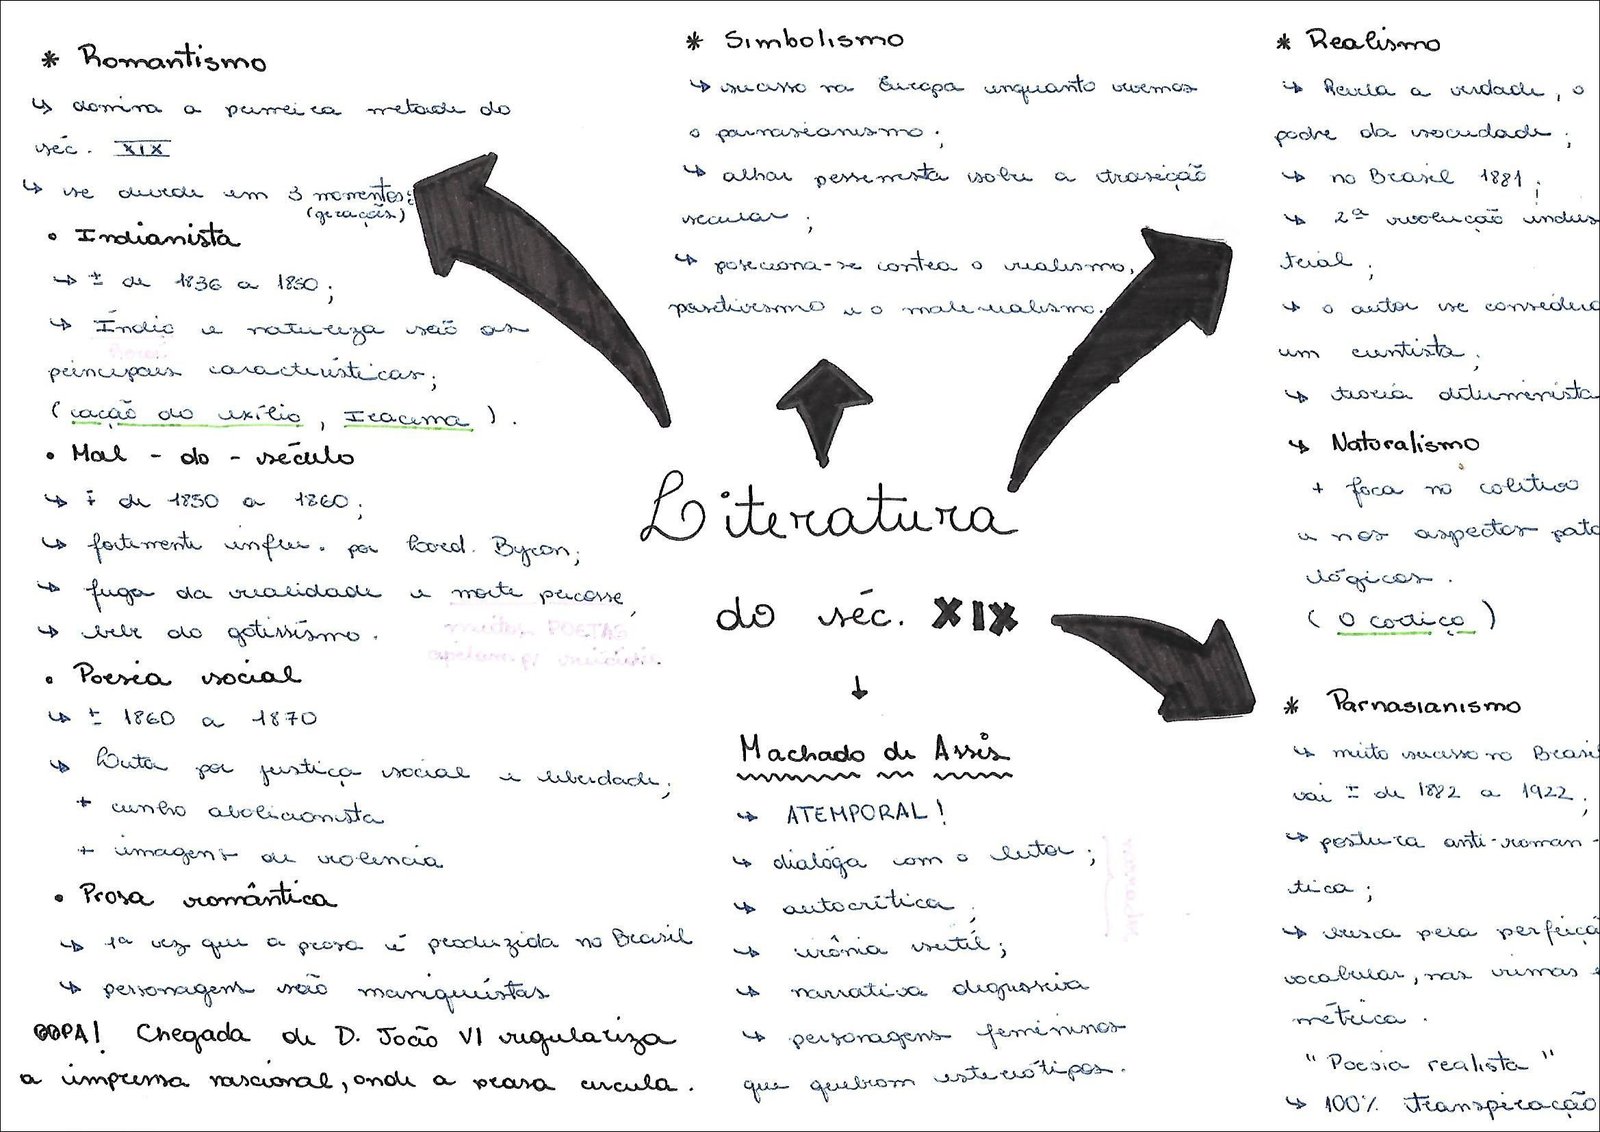 * Romantismo
↳ domina a primeira metade do
séc. XIX
↳ se divide em 3 momentos:
(gerações)
• Indianista
↳ ± de 1836 a 1850;
↳ Índio e natureza são as
principais características;
(cação do exílio, Iracema).
• Mal-do-século
↳ ± de 1850 a 1860;
↳ fortemente influ. por Lord. Byron;
↳ fuga da realidade e morte precosse,
muitos POETAS
apelam p/ suicídio.
↳ bebe do gotissísmo.
• Poesia social
↳ ± 1860 a 1870
↳ Luta por justiça social e liberdade;
+ cunho abolicionista
+ imagens de violencia
• Prosa romântica
↳ 1ª vez que a prosa é produzida no Brasil
↳ personagens são maniqueístas
OOPA! Chegada de D. João VI regulariza
a imprensa nascional, onde a prosa circula.
* Simbolismo
↳ sucesso na Europa enquanto vivemos
o parnasianismo;
↳ olhar pessimista sobre a trasição
secular;
↳ posiciona-se contra o realismo,
positivismo e o materialismo.
Literatura
do séc. XIX
↓
Machado de Assis
↳ ATEMPORAL!
↳ dialóga com o leitor;
↳ autocrítica;
↳ irônia sutil;
↳ narrativa digressiva
↳ personagens femininos
que quebram esteriótipos.
* Realismo
↳ Revela a verdade, o
podre da sociedade;
↳ no Brasil 1881;
↳ 2ª revolução indus
trial;
↳ o autor se considera
um cientista;
↳ teoria determinista
↳ Naturalismo
+ foca no coletivo
e nos aspectos pato
lógicos.
(O cortiço)
* Parnasianismo
↳ muito sucesso no Brasil
vai ± de 1882 a 1922;
↳ postura anti-roman-
tica;
↳ busca pela perfeiçã
vocabular, nas rimas e
métrica.
"Poesia realista"
↳ 100% transpiração